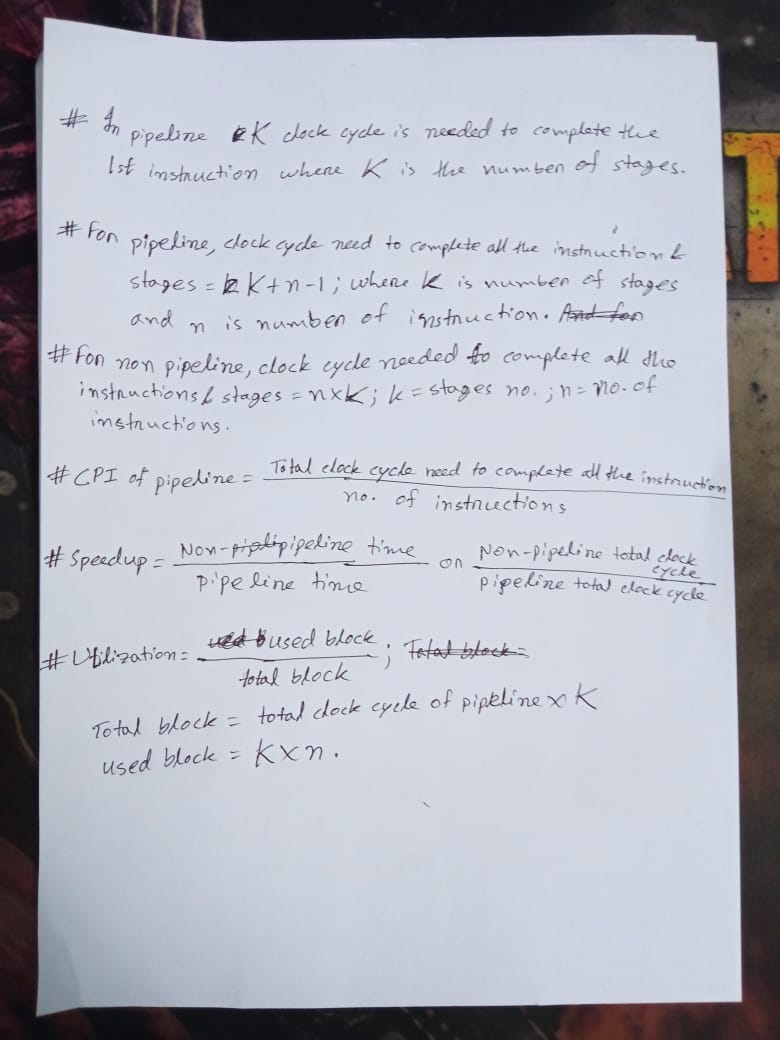 # In pipeline K clock cycle is needed to complete the
1st instruction where K is the number of stages.
# For pipeline, clock cycle need to complete all the instruction &
stages = K+n-1; where K is number of stages
and n is number of instruction. And for
# For non pipeline, clock cycle needed to complete all the
instructions & stages = n×K; k = stages no.; n = no. of
instructions.
# CPI of pipeline = Total clock cycle need to complete all the instruction
no. of instructions
# Speedup = Non-pipeline time or Non-pipeline total clock cycle
pipeline time pipeline total clock cycle
# Utilization = used block ; Total block =
total block
Total block = total clock cycle of pipeline × K
used block = K×n.
AT